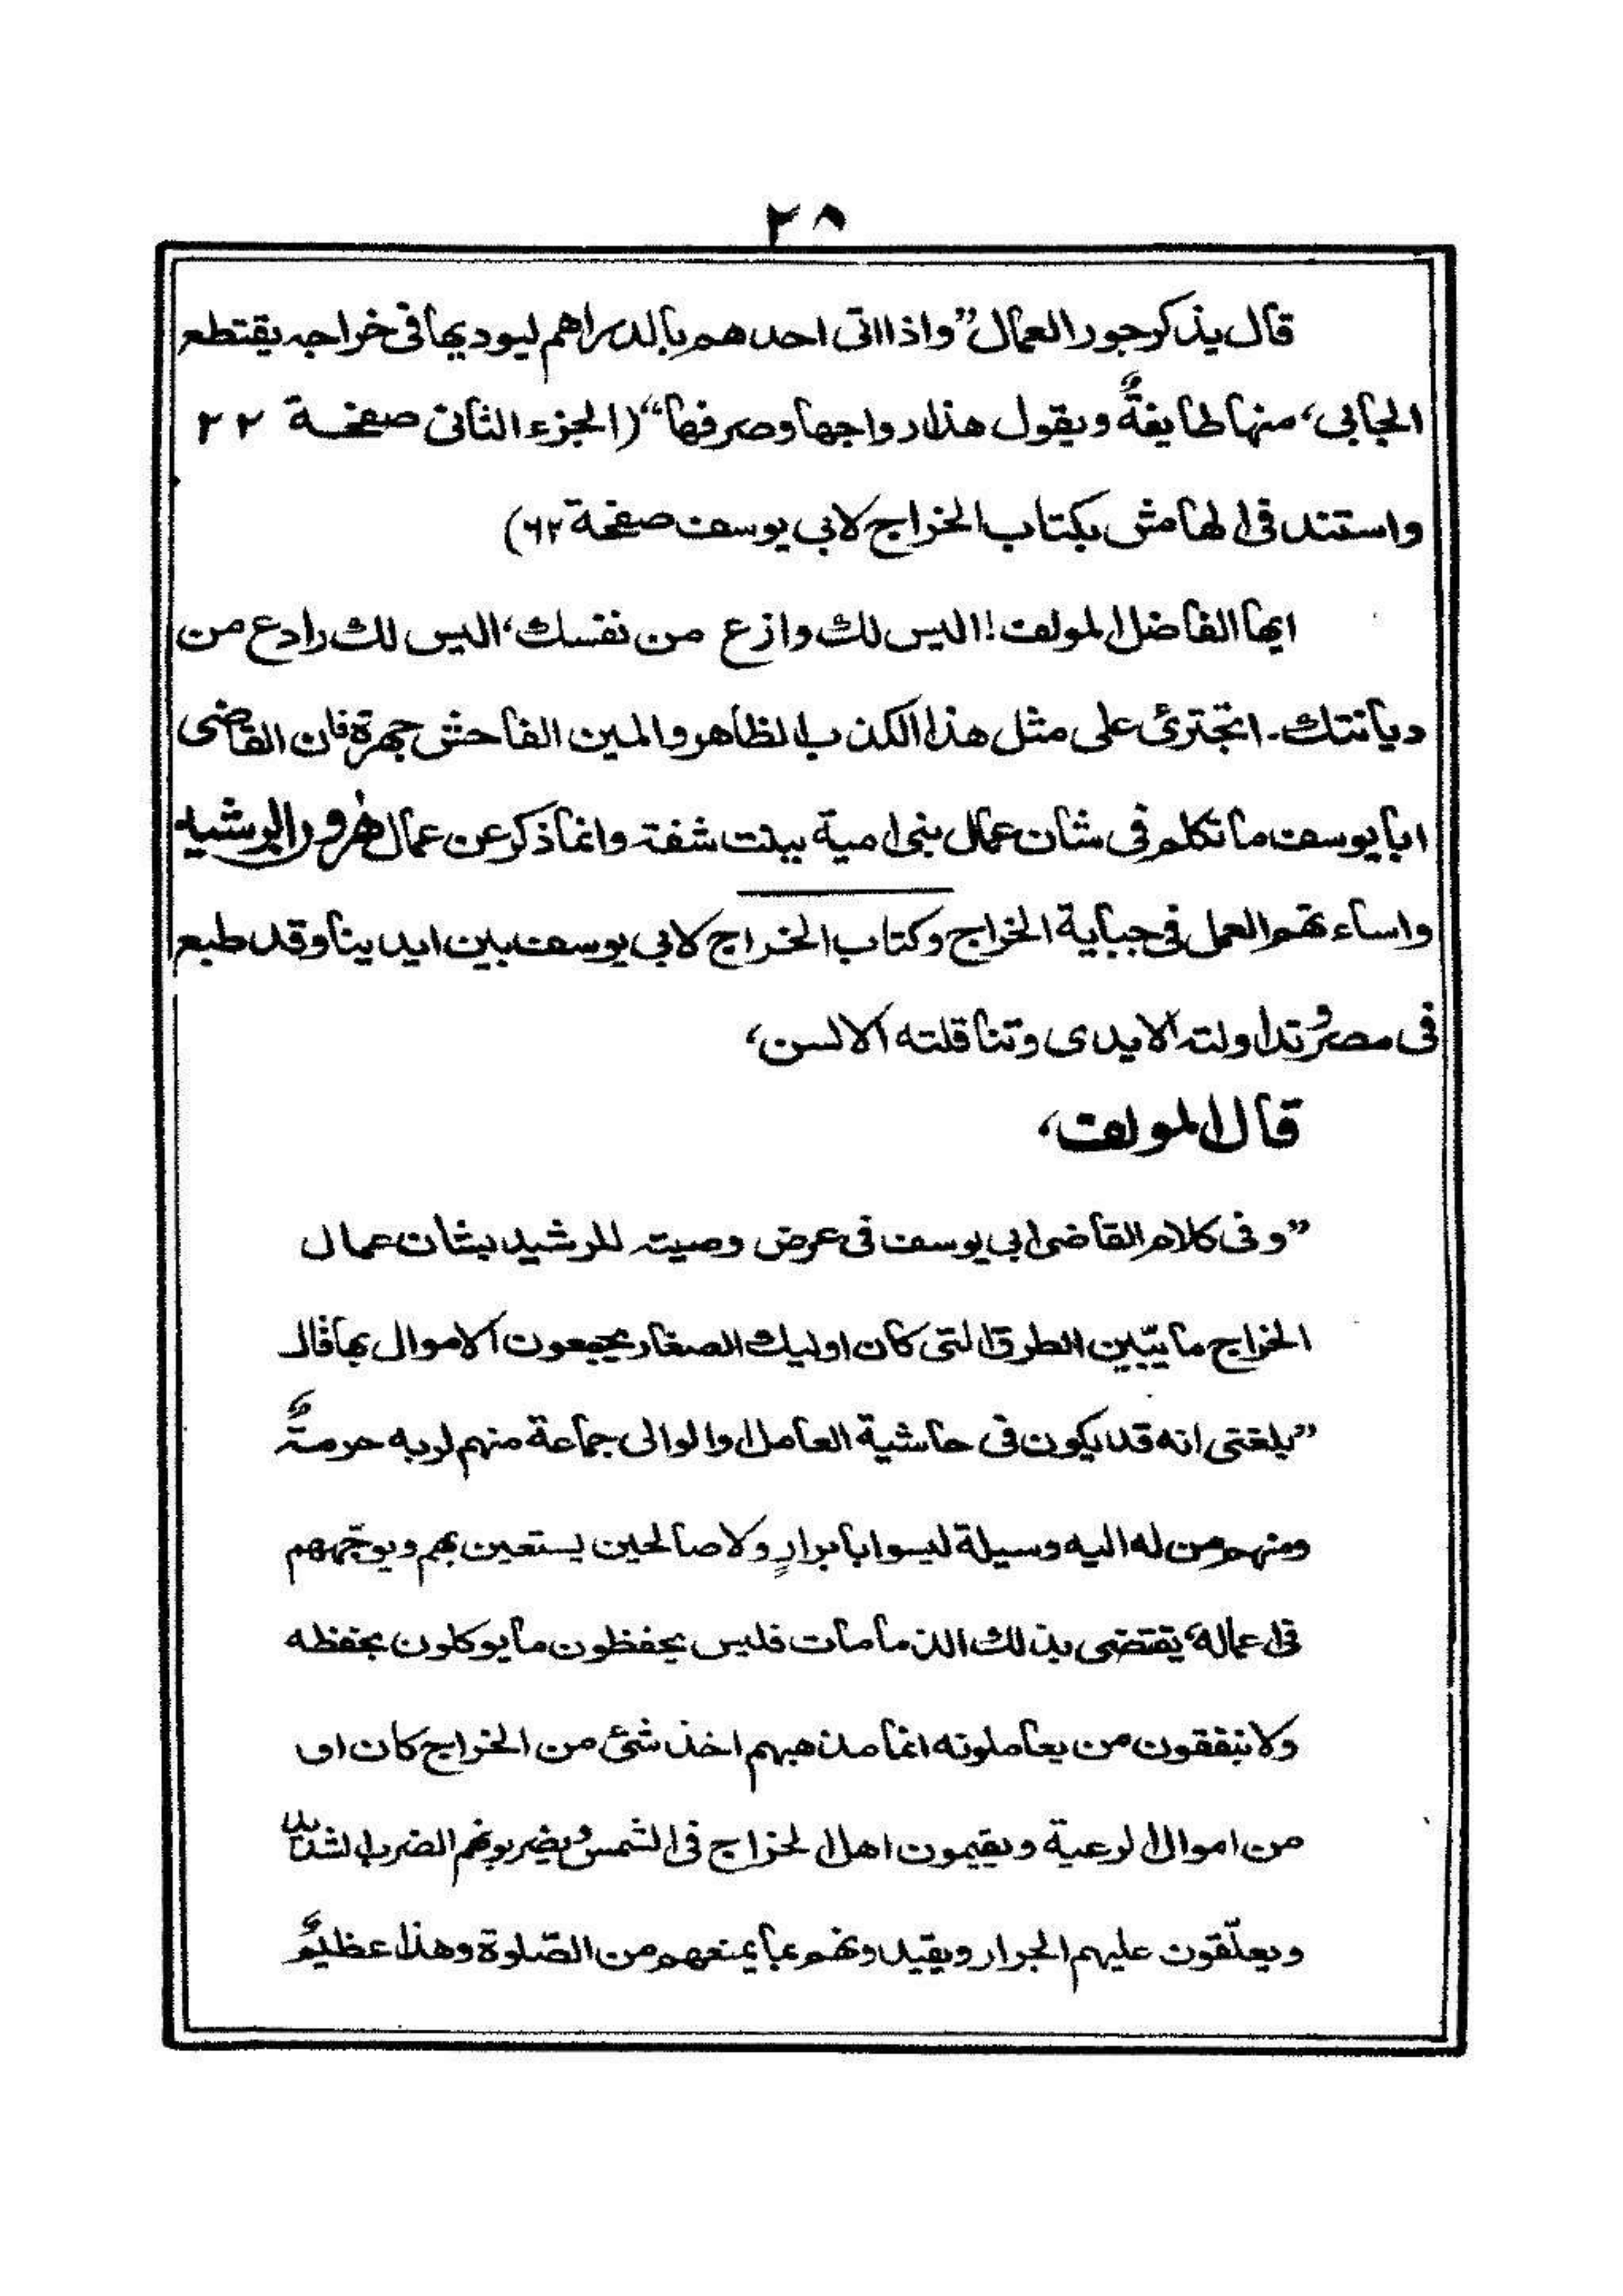 ٢٨
قال يذكر جور العمال "واذا اتى احدهم بالدراهم ليوديها فى خراجه يقتطع
الجابى، منها طايفةً ويقول هذا رواجها وصرفها" (الجزء الثانى صفحة ٢٢
واستند فى الهامش بكتاب الخراج لابي يوسف صفحة ٦٢)
ايها الفاضل المولف! اليس لك وازع من نفسك، اليس لك رادع من
ديانتك۔ اتجترئ على مثل هذا الكذب الظاهر والمين الفاحش جهرة فان القاضى
ابا يوسف ما تكلم فى شان عمال بنى امية ببنت شفة وانما ذكر عن عمال هرون الرشيد
واساءتهم العمل فى جباية الخراج وكتاب الخراج لابي يوسف بين ايدينا وقد طبع
فى مصر وتداولته الايدى وتناقلته الالسن،
قال المولف،
"وفى كلام القاضى ابي يوسف فى عرض وصيته للرشيد بشان عمال
الخراج ما يبّين الطرق التى كان اوليك الصغار يجمعون الاموال بها قال
"بلغنى انه قد يكون فى حاشية العامل والوالى جماعة منهم لربه حرمةٌ
ومنهم من له اليه وسيلة ليسوا بابرارٍ ولا صالحين يستعين بهم ويوجّههم
فى اعماله، يقتضى بذلك الذمامات فليس يحفظون ما يوكلون بحفظه
ولا ينفقون من يعاملونه انما مذهبهم اخذ شئ من الخراج كان او
من اموال الرعية ويقيمون اهل الخراج فى الشمس ويضربونهم الضرب الشديد
ويعلّقون عليهم الجرار ويقيدونهم بما يمنعهم من الصّلوة وهذا عظيمٌ